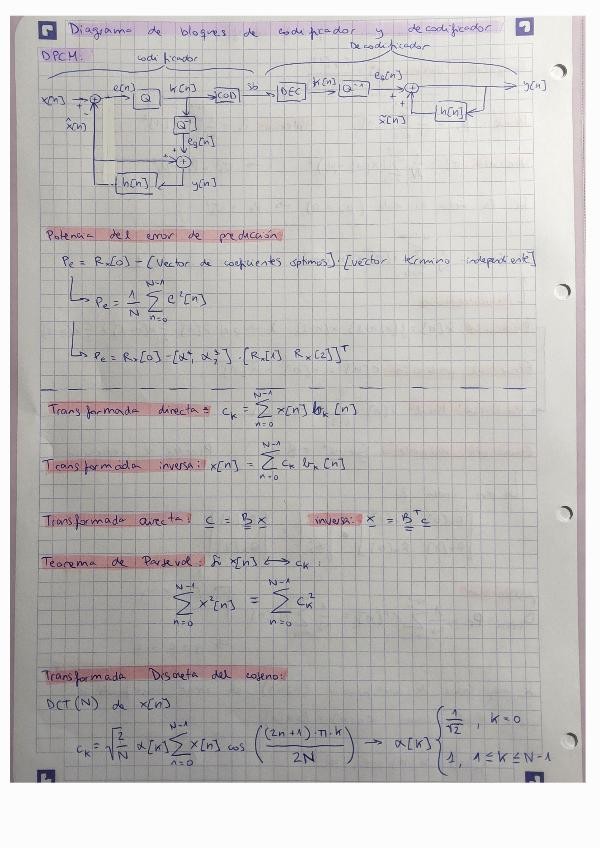 Diagrama de bloques de codificador y decodificador
DPCM: codificador Decodificador
x[n] + e[n] Q K[n] COD sb DEC K[n] Q⁻¹ e_q[n] + y[n]
x̂[n] - Q⁻¹ + h[n]
e_q[n] x̂[n]
+ +
h[n] y[n]
Potencia del error de predicción
Pe = Rx[0] - [vector de coeficientes óptimos] · [vector término independiente]
Pe = 1/N Σ_{n=0}^{N-1} e²[n]
Pe = Rx[0] - [α₁ α₂] · [Rx[1] Rx[2]]ᵀ
Transformada directa: c_k = Σ_{n=0}^{N-1} x[n] b_k[n]
Transformada inversa: x[n] = Σ_{n=0}^{N-1} c_k b_k[n]
Transformada directa: c = B x inversa: x = Bᵀ c
Teorema de Parseval: Si x[n] ⟷ c_k :
Σ_{n=0}^{N-1} x²[n] = Σ_{n=0}^{N-1} c_k²
Transformada Discreta del coseno:
DCT(N) de x[n]
c_k = √(2/N) α[k] Σ_{n=0}^{N-1} x[n] cos ((2n+1)·π·k / 2N) → α[k] { 1/√2 , k=0
1, 1 ≤ k ≤ N-1